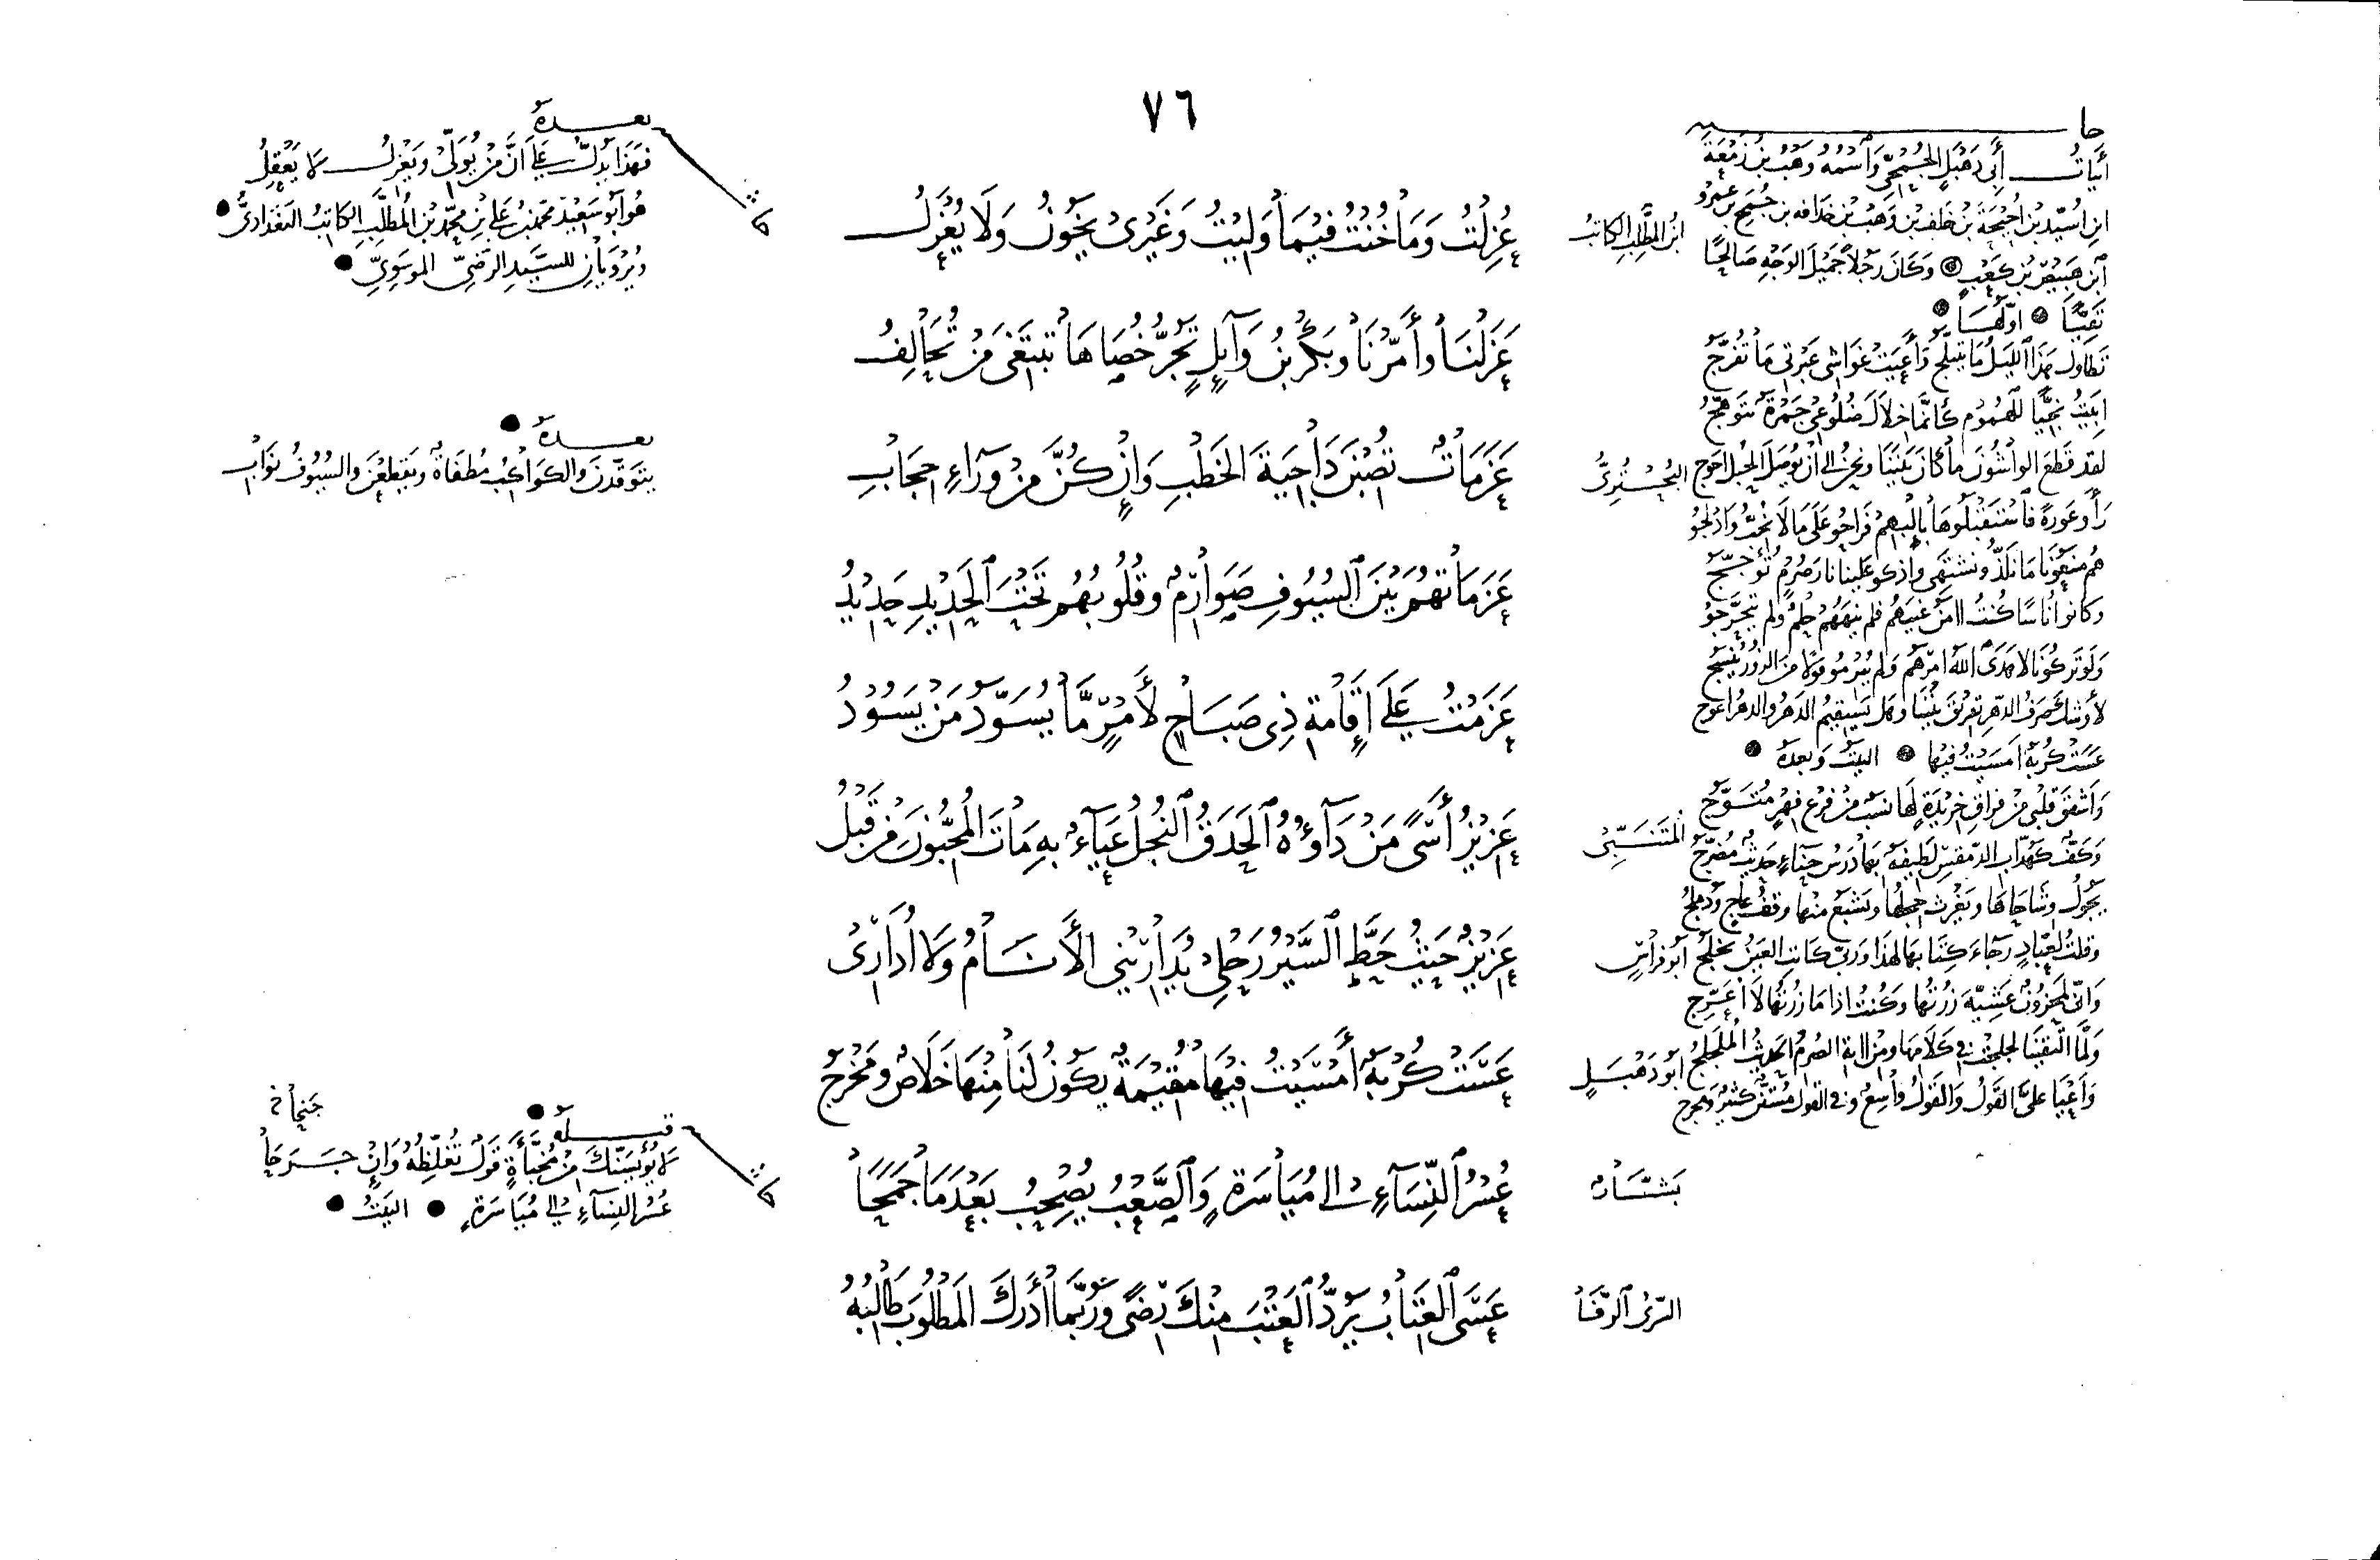 ٧٦
عُزِلْتُ وَمَا خُنْتُ فِيْمَا وَلِيْتُ وَغَيْرِىْ يَخُوْنُ وَلَا يُعْزَلُ
ابْنُ المُطَّلِبِ الكَاتِبُ
عَزَلْنَا وأَمَّرْنَا وبَكْرُ بنُ وَآئِلٍ تَجُرُّ خُصَاهَا تَبتَغِى مَنْ تُحَالِفُ
عَزَمَاتٌ تُضِئْنَ دَاجِيَةَ الخَطْبِ وَإِنْ كُنَّ مِنْ وَرَآءِ حِجَابِ
البُحْتُرِىُّ
عَزَمَاتُهُمْ بَيْنَ ٱلسُيُوفِ صَوَارِمٌ وقُلُوبُهُم تَحْتَ ٱلحَدِيْدِ حَدِيْدُ
عَزَمْتُ عَلَى إِقَامَةِ ذِى صَبَاحٍ لأَمْرٍ مَّا يُسَوَّدُ مَنْ يَسُوْدُ
عَزِيْزُ أَسًى مَنْ دَآؤُهُ ٱلحَدَقُ ٱلنُجْلُ عَيَآءٌ بِهِ مَاتَ المُحِبُّونَ مِنْ قَبْلُ
المُتَنَبِّىْ
عَزِيْزٌ حَيْثُ حَطَّ ٱلسَّيْرُ رَحْلِى يُدَارِيْنِى الأَنَامُ وَلَا أُدَارِىْ
أبُو فِرَاسٍ
عَسَتْ كُرْبَةٌ أَمْسَيْتُ فِيْهَا مُقِيْمَةٌ يَكُوْنُ لَنَا مِنْهَا خَلَاصٌ ومَخْرَجُ
أبُو دَهْبَلٍ
عُسْرُ ٱلنِّسَآءِ إلى مُيَاسَرَةٍ وَٱلصَّعْبُ يُصْحِبُ بَعْدَمَا جَمَحَا
بَشَّارٌ
عَسَى ٱلعِتَابُ يَرُدُّ ٱلعَتْبَ مِنْكَ رِضًى وَرُبَّمَا أَدْرَكَ المَطْلُوبَ طَالِبُهُ
السَّرِىُّ ٱلرَّفَاءُ
أَبْيَاتُ أَبِى دَهْبَلٍ الجُمَحِىِّ وَٱسْمُهُ وَهْبُ بنُ زَمْعَةَ
ابنِ أُسَيْدِ بْنِ أُحَيْحَةَ بْنُ خَلَفِ بْنِ وَهْبِ بْنِ حُذَافَه بنِ جُمَحِ بنِ عَمْرِو
ٱبنِ هُصَيْصِ بْنِ كَعْبٍ وَكَانَ رَجُلاً جَمِيْلَ الوَجْهِ صَالِحًا
تَقِيًّا أوَّلُهَا
تَطَاوَلَ هَذَا اللَّيْلُ مَا يَتَبَلَّجُ وَأَعْيَتْ غَوَاشِى عَبْرَتِى مَا تَفَرَّجُ
أبِيْتُ نَجِيًّا لِلهُمُوْمِ كَأَنَّمَا خِلَالَ ضُلُوْعِى جَمْرَةٌ تَتَوَهَّجُ
لَقَدْ قَطَعَ الوَاشُوْنَ مَا كَانَ بَيْنَنَا ونَحْنُ إلى أنْ يُوْصَلَ الحَبْلُ أحْوَجُ
رَأَوْ عَوْرَةً فَاسْتَقْبَلُوهَا بِأَلْبِهِمْ فَرَاحُو عَلَى مَا لَا نُحِبُّ وَأَدْلَجُو
هُمُ مَنَعُوْنَا مَا نَلَذُّ ونَشْتَهِى وأَذْكَوْ عَلَيْنَا نَارَ صُرْمٍ تُؤَجَّجُ
وَكَانُو أُنَاسًا كُنْتُ آمَنُ غَيْبَهُمْ فلم يَنْهَهُمْ حِلْمٌ ولم يَتَحَرَّجُو
وَلَوْ تَرَكُوْنَا لا هَدَى اللهُ أمْرَهُمْ وَلَم يُبْرِمُو قَوْلًا مِنَ الزُوْرِ يُنْسَجُ
لأَوْشَكَ صَرْفُ الدَّهْرِ تَفْرِيْقَ بَيْنِنَا وَهَل يَسْتَقِيْمُ الدَّهْرُ والدَهرُ أعْوَجُ
عَسَتْ كُرْبَةٌ أمْسَيْتُ فِيْهَا البَيْتُ وَبَعْدَهُ
وَأَشْفَقَ قَلْبِى مِنْ فِرَاقِ خَرِيْدَةٍ لَهَا نَسَبٌ مِنْ فَرْعِ فِهْرٍ مُتَوَّجُ
وَكَفٌّ كَهُدَّابِ الدِّمَقْسِ لَطِيْفَةٌ بِهَا دَرْسُ حِنَّاءٍ حَدِيْثٌ مُضَرَّجُ
يَجُوْلُ وِشَاحَاهَا وَيَغْرَثُ حِجْلُهَا وَيَشْبَعُ مِنْهَا وَقْفُ عَاجٍ وَدُمْلُجُ
وَقُلْتُ لِعَبَّادٍ وجَاءَ كِتَابُهَا لِهَذَا وَرَبِّى كَانَتِ العَيْنُ تَخْلُجُ
وَانِّى لَمَحْزُوْنٌ عَشِيَّةَ زُرْتُهَا وَكُنْتُ إذا مَا زُرْتُهَا لَا أُعَرِّجُ
وَلَمَّا الْتَقَيْنَا لَجْلَجَتْ فى كَلَامِهَا ومِنْ آيَةِ الصُرْمِ الحَدِيْثُ المُلَجْلَجُ
وَأَعْيَا عَلَىَّ القَوْلُ وَالقَوْلُ وَاسِعٌ وَفى القَوْلِ مُسْتَنٌّ كَثِيْرٌ ومَخْرَجُ
بَعْدَهُ
فَهَذَا يَدُلُّ عَلَى انَّ مَنْ يُوَلِّىْ وَيَعْزِلُ لَا يَعْقِلُ
هُوَ أبُو سَعِيْدٍ مُحَمَّدُ بْنُ عَلِىِّ بْنِ مُحَمَّدِ بْنِ المُطَّلِبِ الكَاتِبُ البَغْدَادِىُّ
ويُرْوَيَانِ للسَّيِّدِ الرَّضِىِّ المُوسَوِىِّ
بَعْدَهُ
يَتَوَقَّدْنَ والكَوَاكِبُ مُطْفَاةٌ ويَقْطَعْنَ والسُيُوْفُ نَوَابِ
قَبْلَهُ
لَا يُؤْيِسَنَّكَ مِنْ مُخَبَّأَةٍ قَوْلٌ تُغَلِّظُهُ وَإنْ جَرَحَا
عُسْرُ النِسَآءِ إلى مُيَاسَرَةٍ البَيْتُ